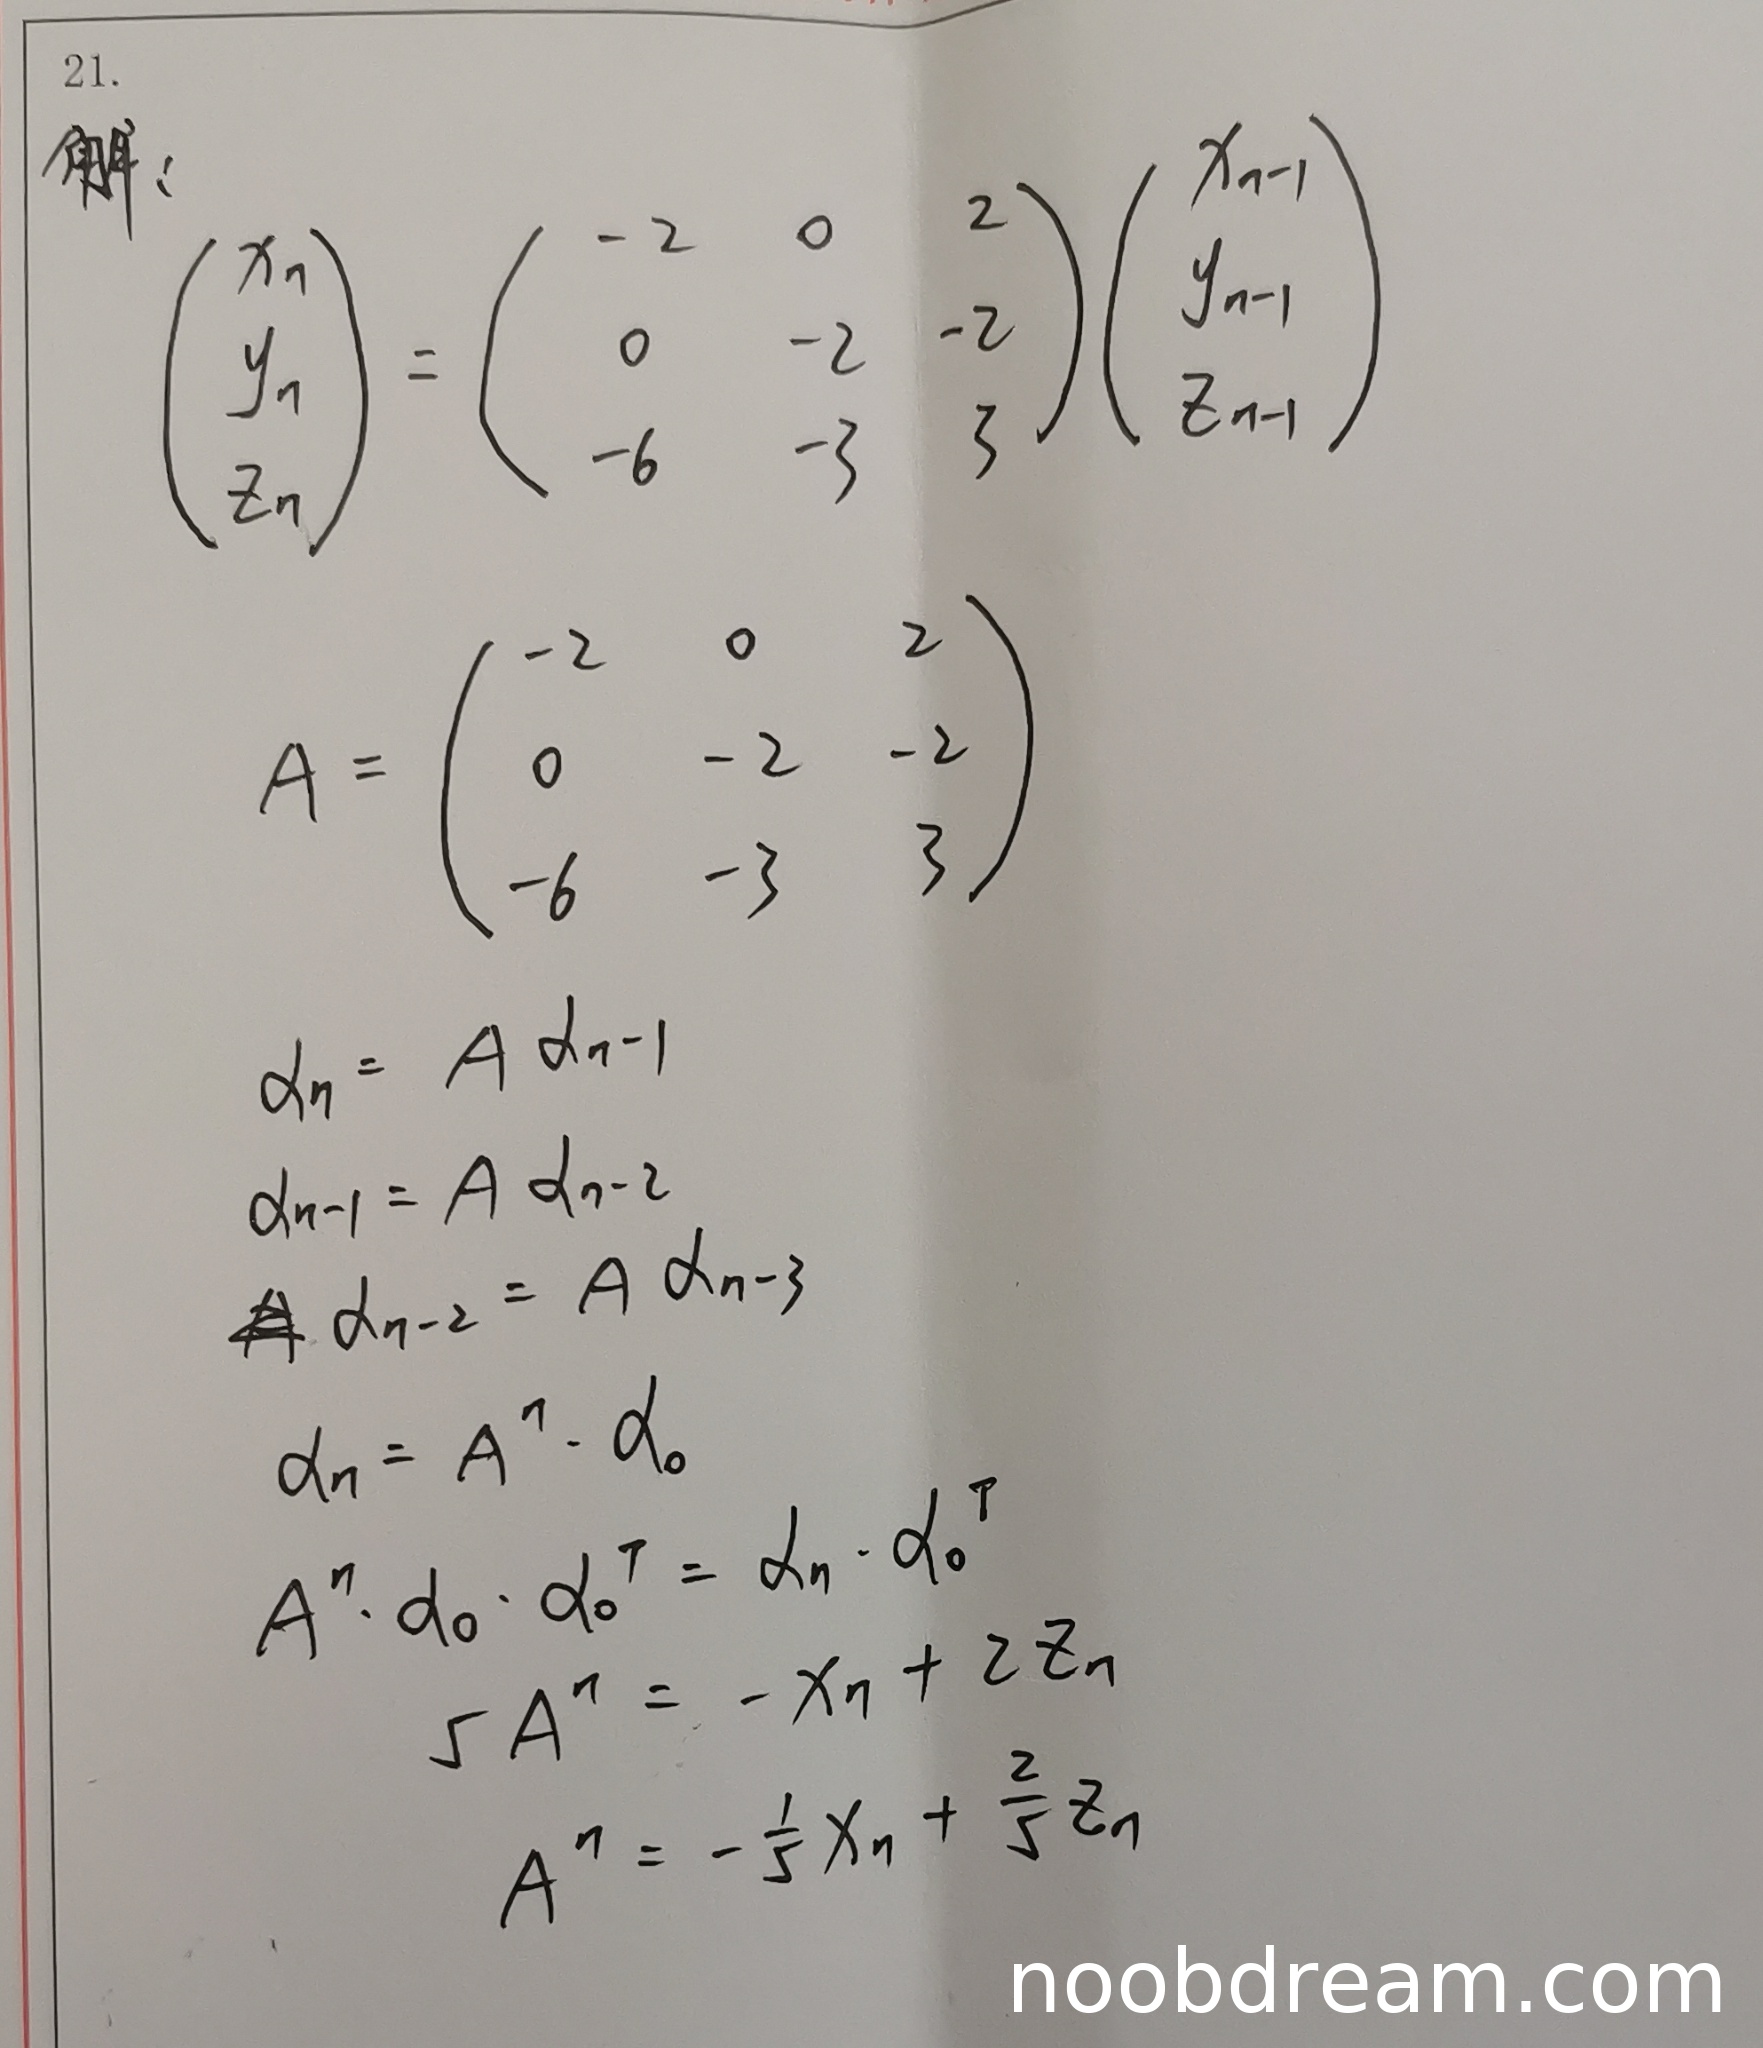 21.
解:
(xn yn zn) = (-2 0 2 0 -2 -2 -6 -3 3) (xn-1 yn-1 zn-1)
A = (-2 0 2 0 -2 -2 -6 -3 3)
αn = A αn-1
αn-1 = A αn-2
αn-2 = A αn-3
αn = A^n · α0
A^n · α0 · α0^T = αn · α0^T
5A^n = -xn + 2zn
A^n = -1/5 xn + 2/5 zn
noobdream.com